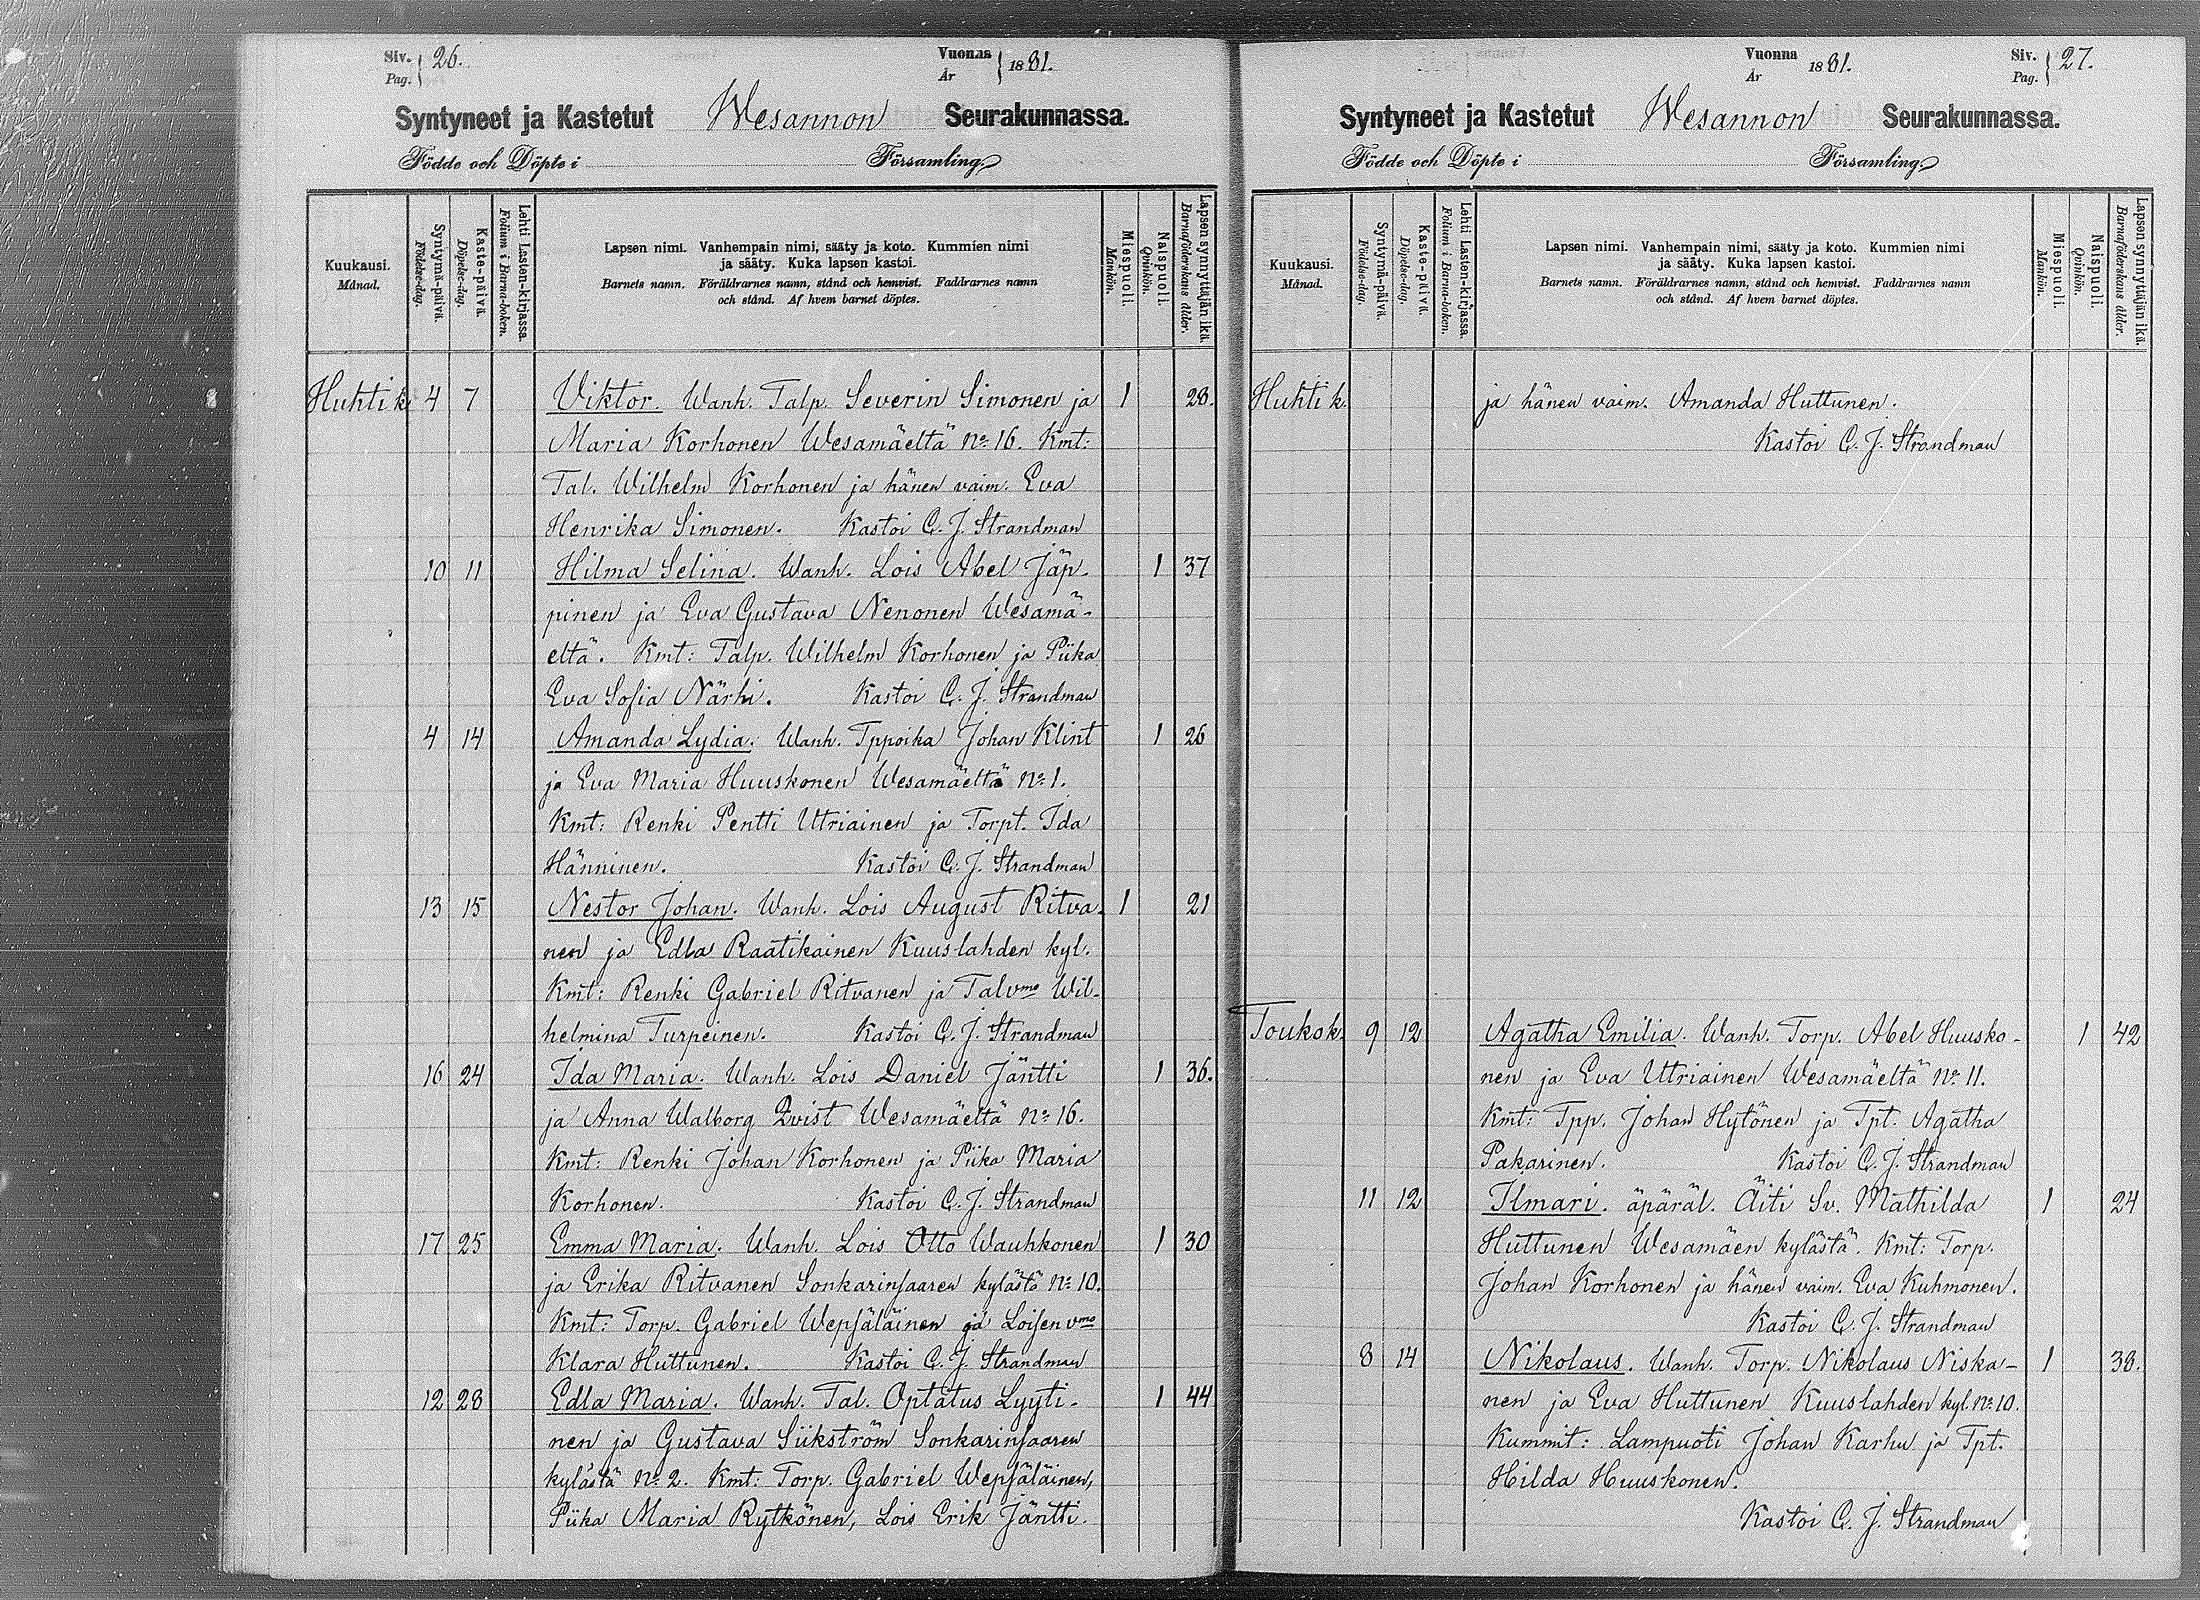 Siv. 26. Vuonna 1881.
Pag. År
Syntyneet ja Kastetut Wesannon Seurakunnassa.
Födde och Döpte i Församling.
Kuukausi.
Månad.
Syntymä-päivä.
Födelse-dag.
Kaste-päivä.
Döpelse-dag.
Lehti Lasten-kirjassa.
Folium i Barna-boken.
Lapsen nimi. Vanhempain nimi, sääty ja koto. Kummien nimi
ja sääty. Kuka lapsen kastoi.
Barnets namn. Föräldrarnes namn, stånd och hemvist. Faddrarnes namn
och stånd. Af hvem barnet döptes.
Miespuoli.
Mankön.
Naispuoli.
Qvinkön.
Lapsen synnyttäjän ikä.
Barnaföderskans ålder.
Huhtik. 4 7 Viktor. Wanh. Talp. Severin Simonen ja 1 28.
Maria Korhonen Wesamäeltä No 16. Kmt:
Tal. Wilhelm Korhonen ja hänen vaim. Eva
Henrika Simonen. Kastoi C. J. Strandman
10 11 Hilma Selina. Wanh. Lois Abel Jäp- 1 37
pinen ja Eva Gustava Nenonen Wesamä-
eltä. Kmt: Talp. Wilhelm Korhonen ja Piika
Eva Sofia Närhi. Kastoi C. J. Strandman
4 14 Amanda Lydia. Wanh. Tppoika Johan Klint 1 26
ja Eva Maria Huuskonen Wesamäeltä No 1.
Kmt: Renki Pentti Utriainen ja Torpt. Ida
Hänninen. Kastoi C. J. Strandman
13 15 Nestor Johan. Wanh. Lois August Ritva- 1 21
nen ja Edla Raatikainen Kuuslahden kyl.
Kmt: Renki Gabriel Ritvanen ja Talvmo Wil-
helmina Turpeinen. Kastoi C. J. Strandman
16 24 Ida Maria. Wanh. Lois Daniel Jäntti 1 36.
ja Anna Walborg Qvist Wesamäeltä No 16.
Kmt: Renki Johan Korhonen ja Piika Maria
Korhonen. Kastoi C. J. Strandman
17 25 Emma Maria. Wanh. Lois Otto Wauhkonen 1 30
ja Erika Ritvanen Sonkarinsaaren kylästä No 10.
Kmt: Torp. Gabriel Wepsäläinen ja Loisen vmo
Klara Huttunen. Kastoi C. J. Strandman
12 28 Edla Maria. Wanh. Tal. Optatus Lyyti- 1 44
nen ja Gustava Siikström Sonkarinsaaren
kylästä No 2. Kmt: Torp. Gabriel Wepsäläinen,
Piika Maria Rytkönen, Lois Erik Jäntti.
Vuonna 1881. Siv. 27.
År Pag.
Syntyneet ja Kastetut Wesannon Seurakunnassa.
Födde och Döpte i Församling.
Kuukausi.
Månad.
Syntymä-päivä.
Födelse-dag.
Kaste-päivä.
Döpelse-dag.
Lehti Lasten-kirjassa.
Folium i Barna-boken.
Lapsen nimi. Vanhempain nimi, sääty ja koto. Kummien nimi
ja sääty. Kuka lapsen kastoi.
Barnets namn. Föräldrarnes namn, stånd och hemvist. Faddrarnes namn
och stånd. Af hvem barnet döptes.
Miespuoli.
Mankön.
Naispuoli.
Qvinkön.
Lapsen synnyttäjän ikä.
Barnaföderskans ålder.
Huhtik. ja hänen vaim. Amanda Huttunen.
Kastoi C. J. Strandman
Toukok. 9 12 Agatha Emilia. Wanh. Torp. Abel Huusko- 1 42
nen ja Eva Utriainen Wesamäeltä No 11.
Kmt: Tpp. Johan Hytönen ja Tpt. Agatha
Pakarinen. Kastoi C. J. Strandman
11 12 Ilmari. äpäräl. Äiti Sv. Mathilda 1 24
Huttunen Wesamäen kylästä. Kmt: Torp.
Johan Korhonen ja hänen vaim. Eva Kuhmonen.
Kastoi C. J. Strandman
8 14 Nikolaus. Wanh. Torp. Nikolaus Niska- 1 38.
nen ja Eva Huttunen Kuuslahden kyl. No 10.
Kummit: Lampuoti Johan Karhu ja Tpt.
Hilda Huuskonen.
Kastoi C. J. Strandman